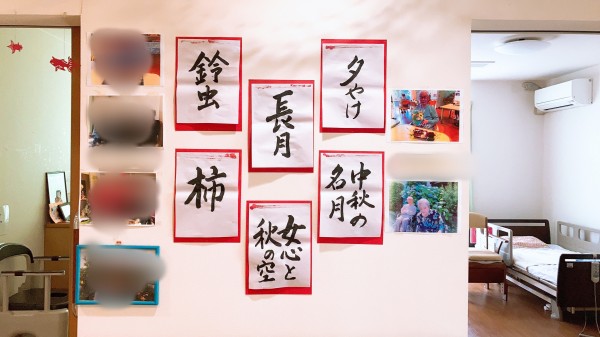 夕やけ
中秋の
名月
長月
女心と
秋の空
鈴虫
柿